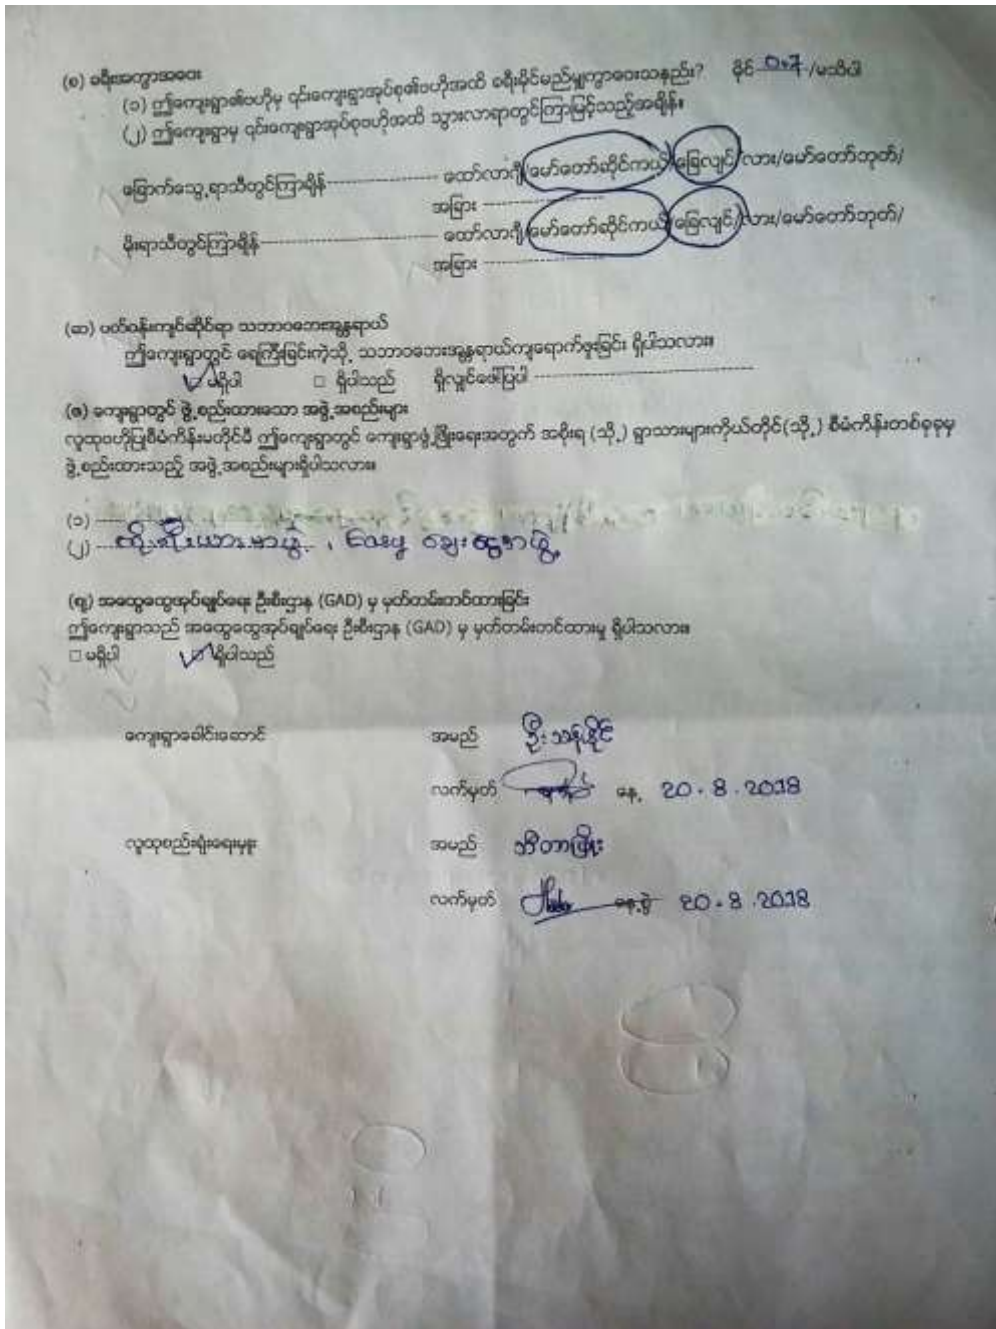 (စ) ခရီးအကွာအဝေး
(၁) ဤကျေးရွာ၏ဗဟိုမှ ၎င်းကျေးရွာအုပ်စု၏ဗဟိုအထိ ခရီးမိုင်မည်မျှကွာဝေးသနည်း? မိုင် 0.7 /မသိပါ
(၂) ဤကျေးရွာမှ ၎င်းကျေးရွာအုပ်စုဗဟိုအထိ သွားလာရာတွင်ကြာမြင့်သည့်အချိန်။
ခြောက်သွေ့ရာသီတွင်ကြာချိန် ထော်လာဂျီ/မော်တော်ဆိုင်ကယ်/ခြေလျင်/လား/မော်တော်ဘုတ်/
အခြား
မိုးရာသီတွင်ကြာချိန် ထော်လာဂျီ/မော်တော်ဆိုင်ကယ်/ခြေလျင်/လား/မော်တော်ဘုတ်/
အခြား
(ဆ) ပတ်ဝန်းကျင်ဆိုင်ရာ သဘာဝဘေးအန္တရာယ်
ဤကျေးရွာတွင် ရေကြီးခြင်းကဲ့သို့ သဘာဝဘေးအန္တရာယ်ကျရောက်ဖူးခြင်း ရှိပါသလား။
မရှိပါ □ ရှိပါသည် ရှိလျှင်ဖေါ်ပြပါ
(ဇ) ကျေးရွာတွင် ဖွဲ့စည်းထားသော အဖွဲ့အစည်းများ
လူထုဗဟိုပြုစီမံကိန်းမတိုင်မီ ဤကျေးရွာတွင် ကျေးရွာဖွံ့ဖြိုးရေးအတွက် အစိုးရ (သို့) ရွာသားများကိုယ်တိုင်(သို့) စီမံကိန်းတစ်ခုခုမှ
ဖွဲ့စည်းထားသည့် အဖွဲ့အစည်းများရှိပါသလား။
(၁)
(၂)
(ဈ) အထွေထွေအုပ်ချုပ်ရေး ဦးစီးဌာန (GAD) မှ မှတ်တမ်းတင်ထားခြင်း
ဤကျေးရွာသည် အထွေထွေအုပ်ချုပ်ရေး ဦးစီးဌာန (GAD) မှ မှတ်တမ်းတင်ထားမှု ရှိပါသလား။
□ မရှိပါ ရှိပါသည်
ကျေးရွာခေါင်းဆောင် အမည် ဦးသန်းနိုင်
လက်မှတ် နေ့ 20.8.2018
လူထုစည်းရုံးရေးမှူး အမည် သီတာဖြိုး
လက်မှတ် နေ့စွဲ 20.8.2018